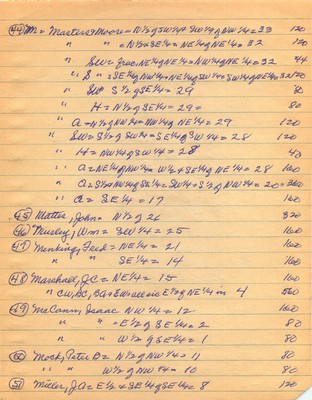 (44) M = Masters & Moore = N½ of SW¼ + SW¼ of NW¼ = 33 120
" " = N½ + SE¼ = NE¼ of NE¼ = 32 120
" SW = NE¼ of NE¼ = NW¼ of NE¼ = 32 44
" S " = SE¼ of NW¼ + NE¼ of SW¼ = SW¼ of NE¼ = 32 120
" SW S½ of SE¼ = 29 80
" H = N½ of SE¼ = 29 = 80
" a = N½ of NW¼ = NW¼ of NE¼ = 29 120
" SW = S½ of SW¼ = SE¼ of SW¼ = 28 120
" H = NW¼ of SW¼ = 28 40
" a = NE¼ of NW¼ = W½ + SE¼ of NE¼ = 28 160
" a = S½ + NW¼ of SE¼ = SW¼ = S½ of NW¼ = 20 = 360
" a = SE¼ = 17 160
(45) Matter, John = N½ of 26 320
(46) Wm = SW¼ = 25 160
(47) Fred = NE¼ = 21 160
" " SE¼ = 14 160
(48) Marshall, J.C = NE¼ = 15 160
" E½ of NE¼ in 4 560
(49) McCann, Isaac NW¼ = 12 160
" " = E½ of SE¼ = 2 80
" " W½ of SE¼ = 1 80
(50) Mock, Peter B = N½ of NW¼ = 11 80
" " W½ of NW¼ = 10 80
(51) Miller, J.A = E½ + SE¼ of SE¼ = 8 120